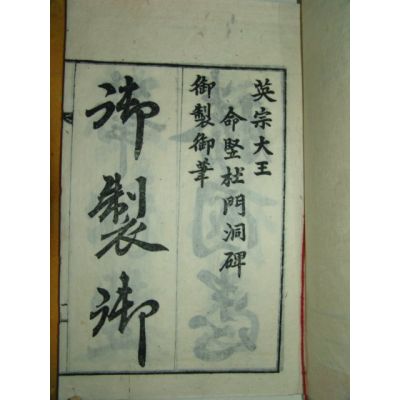 英宗大王
命竪杜門洞碑
御製御筆
御製御